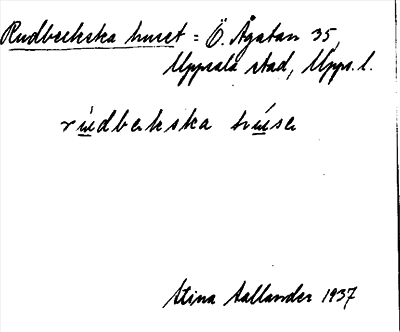 Rudbeckska huset = Ö. Ågatan 35,
Uppsala stad, Upps. l.
rúdbekska húse
Stina Sallander 1937